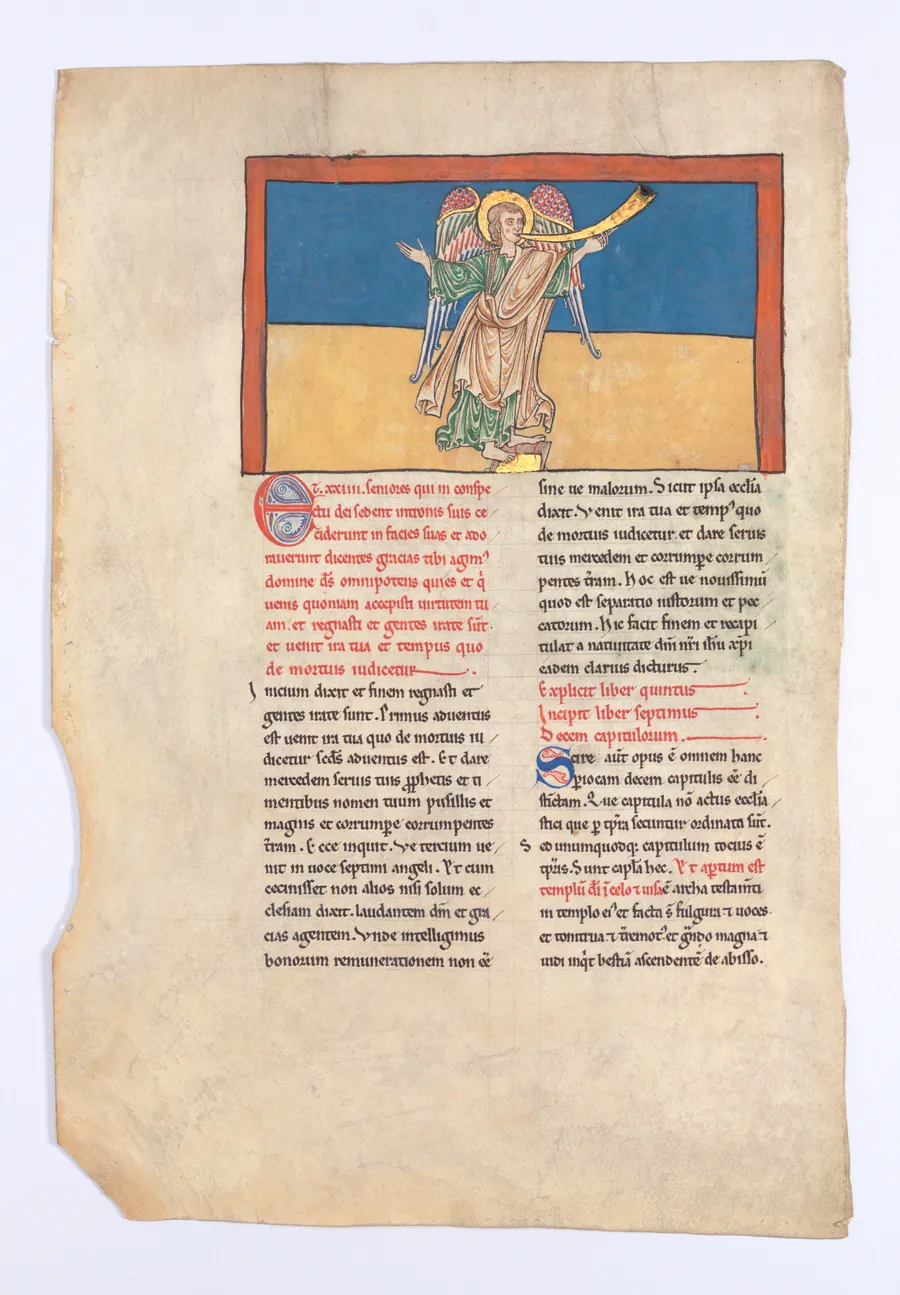 Et .xxiiii. seniores qui in conspe
ctu dei sedent intronis suis ce
ciderunt in facies suas et ado
raverunt dicentes gracias tibi agimꝰ
domine d̅s omnipotens qui es et q̇
uenis quoniam accepisti uirtutem tu
am. et regnasti et gentes irate su̅t.
et uenit ira tua et tempus quo
de mortuis iudicetur.
Inicium dixit et finem regnasti et
gentes irate sunt. Primus aduentus
est uenit ira tua quo de mortuis iu
dicetur sc̅ds aduentus est. Et dare
mercedem seruis tuis ꝓphetis et ti
mentibus nomen tuum pusillis et
magnis et corrumpe corrumpentes
t̅ram. Ecce inquit. Ve tercium ue
nit in uoce septimi angeli. Vt cum
cecinisset non alios nisi solum ec
clesiam dixit. laudantem dm̅ et gra
cias agentem. Vnde intelligimus
bonorum remunerationem non ee̅
sine ue malorum. Sicut ipsa eccl̅ia
dixit. Venit ira tua et tempꝰ quo
de mortuis iudicetur et dare seruis
tuis mercedem et corrumpe corrum
pentes t̅ram. Hoc est ue nouissimu̅
quod est separatio iustorum et pec
catorum. Hic facit finem et recapi
tulat a natiuitate dn̅i nr̅i ih̅u xp̅i
eadem clarius dicturus.
Explicit liber quintus.
Incipit liber septimus.
Decem capitulorum.
Scire aut̅ opus e̅ omnem hanc
periocam decem capitulis ee̅ di
sti̅ctam. Que capitula no̅ actus eccl̅ia
stici que ꝑ tp̅ra secuntur ordinata su̅t.
Sed unumquodqꝫ capitulum tocius e̅
tp̅ris. Sunt capl̅a hec. Et aꝑtum est
templu̅ d̅i i̅ celo ⁊ uisa e̅ archa testam̅ti
in templo eiꝰ et facta s̅ fulgura ⁊ uoces.
et tonitrua ⁊ t̅remotꝰ et g̅ndo magna ⁊
uidi inq̇t bestia̅ ascendente̅ de abisso.